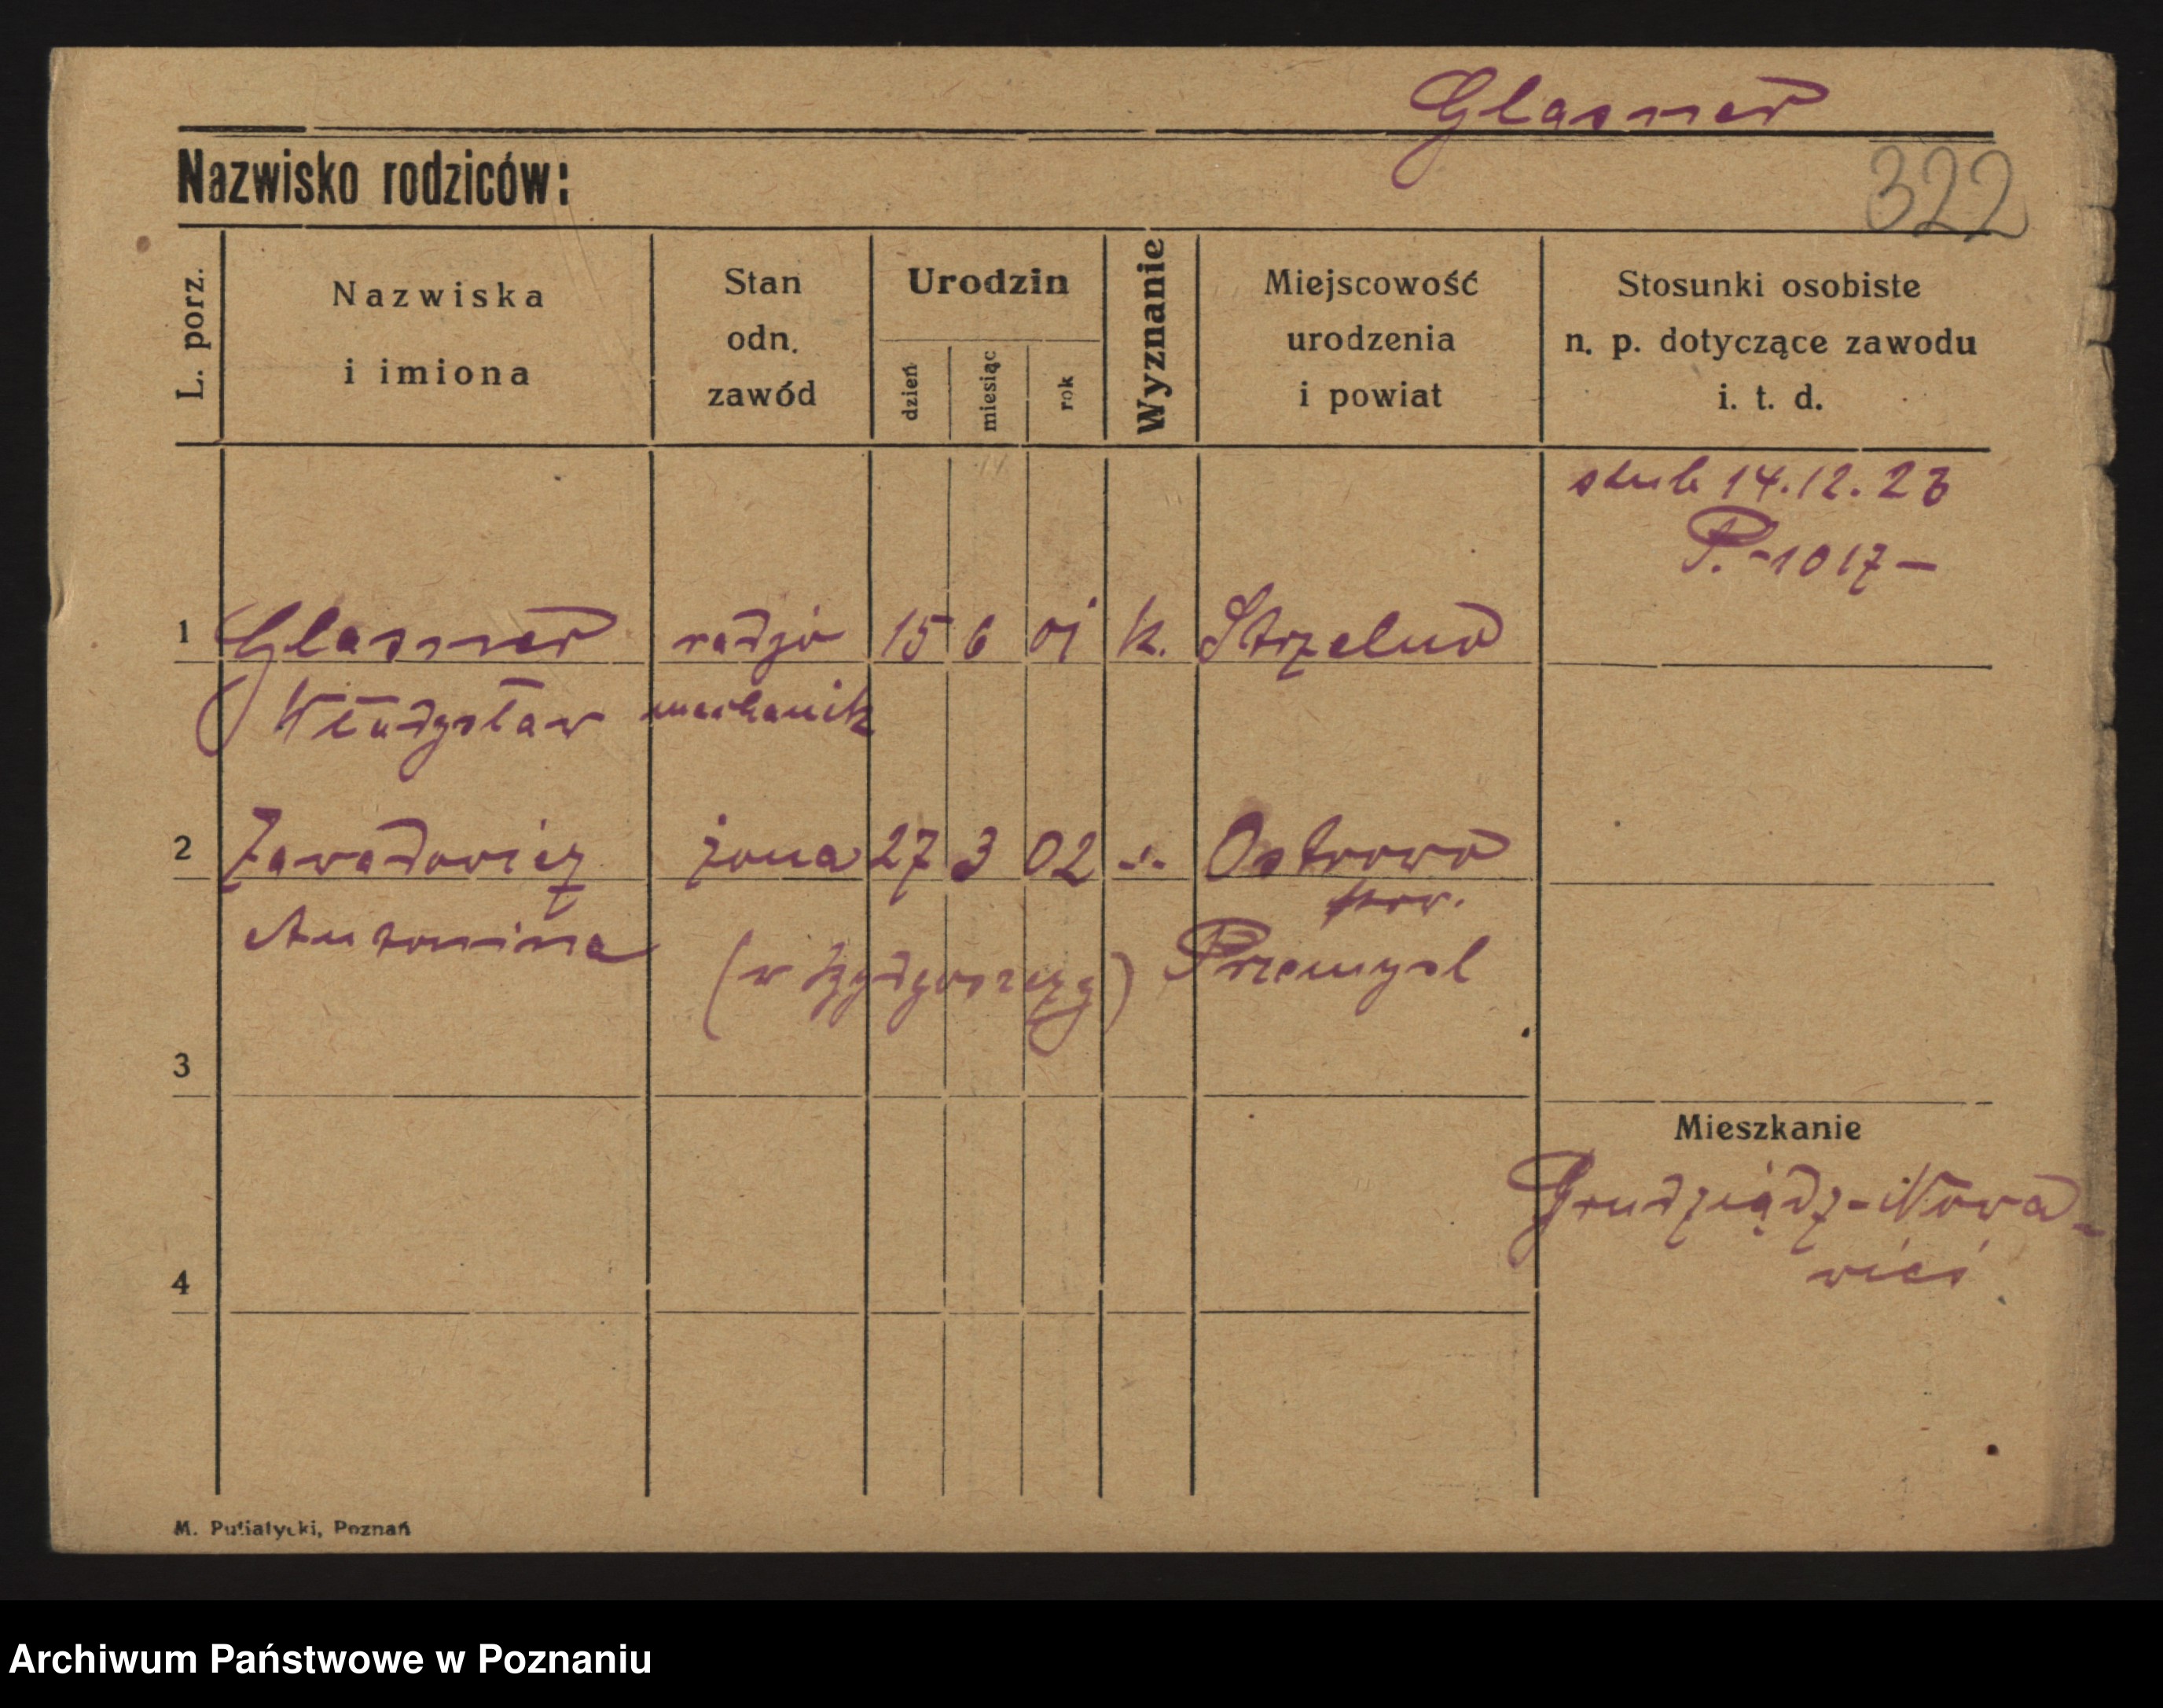 Glasner
Nazwisko rodziców:
322
L. porz.
Nazwiska
i imiona
Stan
odn.
zawód
Urodzin
dzień
miesiąc
rok
Wyznanie
Miejscowość
urodzenia
i powiat
Stosunki osobiste
n. p. dotyczące zawodu
i. t. d.
slub 14.12.28
P.-1017-
1 Glasner radjo 15 6 01 k. Strzelno
Władysław mechanik
2 Zawadowicz żona 27 3 02 -"- Ostrowo
pow.
Antonina
(w Bydgoszczy) Przemysl
3
Mieszkanie
Grudziądz-Nowa-
wieś
4
M. Putiatycki, Poznań
Archiwum Państwowe w Poznaniu